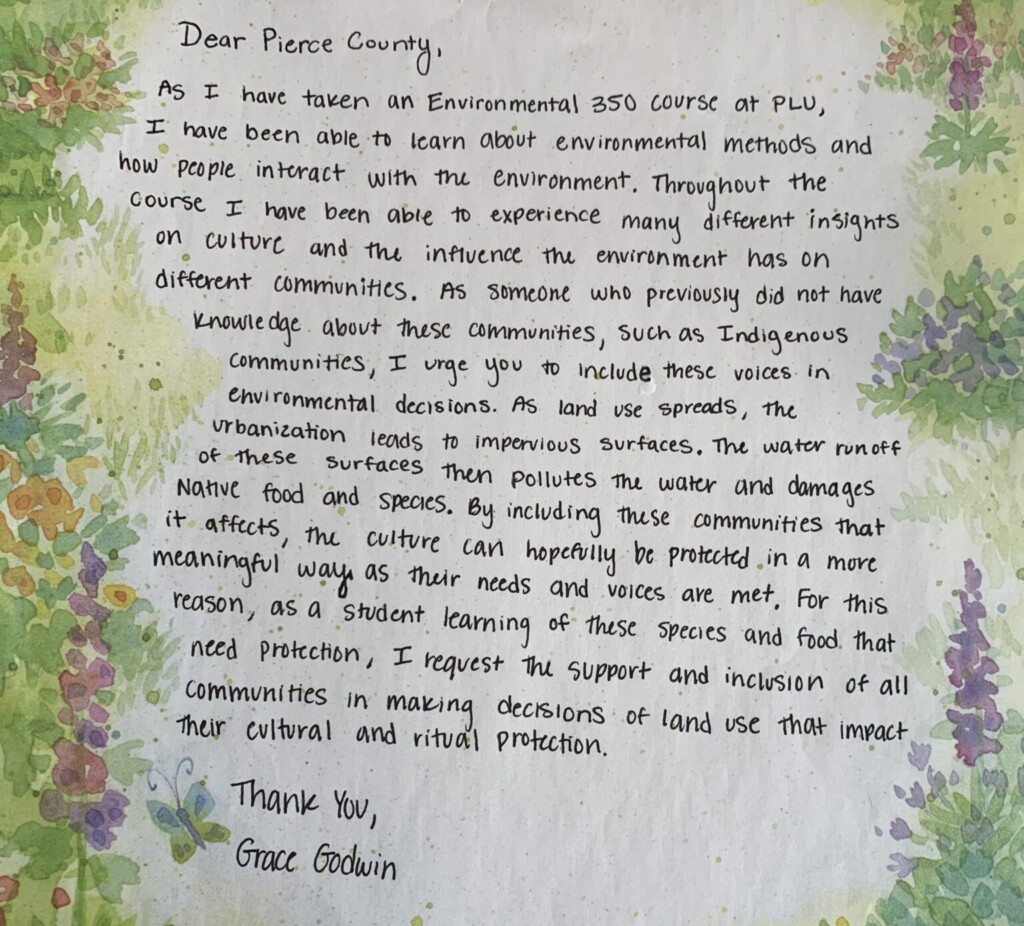 Dear Pierce County,
As I have taken an Environmental 350 course at PLU,
I have been able to learn about environmental methods and
how people interact with the environment. Throughout the
course I have been able to experience many different insights
on culture and the influence the environment has on
different communities. As someone who previously did not have
knowledge about these communities, such as Indigenous
communities, I urge you to include these voices in
environmental decisions. As land use spreads, the
urbanization leads to impervious surfaces. The water runoff
of these surfaces then pollutes the water and damages
Native food and species. By including these communities that
it affects, the culture can hopefully be protected in a more
meaningful way, as their needs and voices are met. For this
reason, as a student learning of these species and food that
need protection, I request the support and inclusion of all
communities in making decisions of land use that impact
their cultural and ritual protection.
Thank You,
Grace Godwin